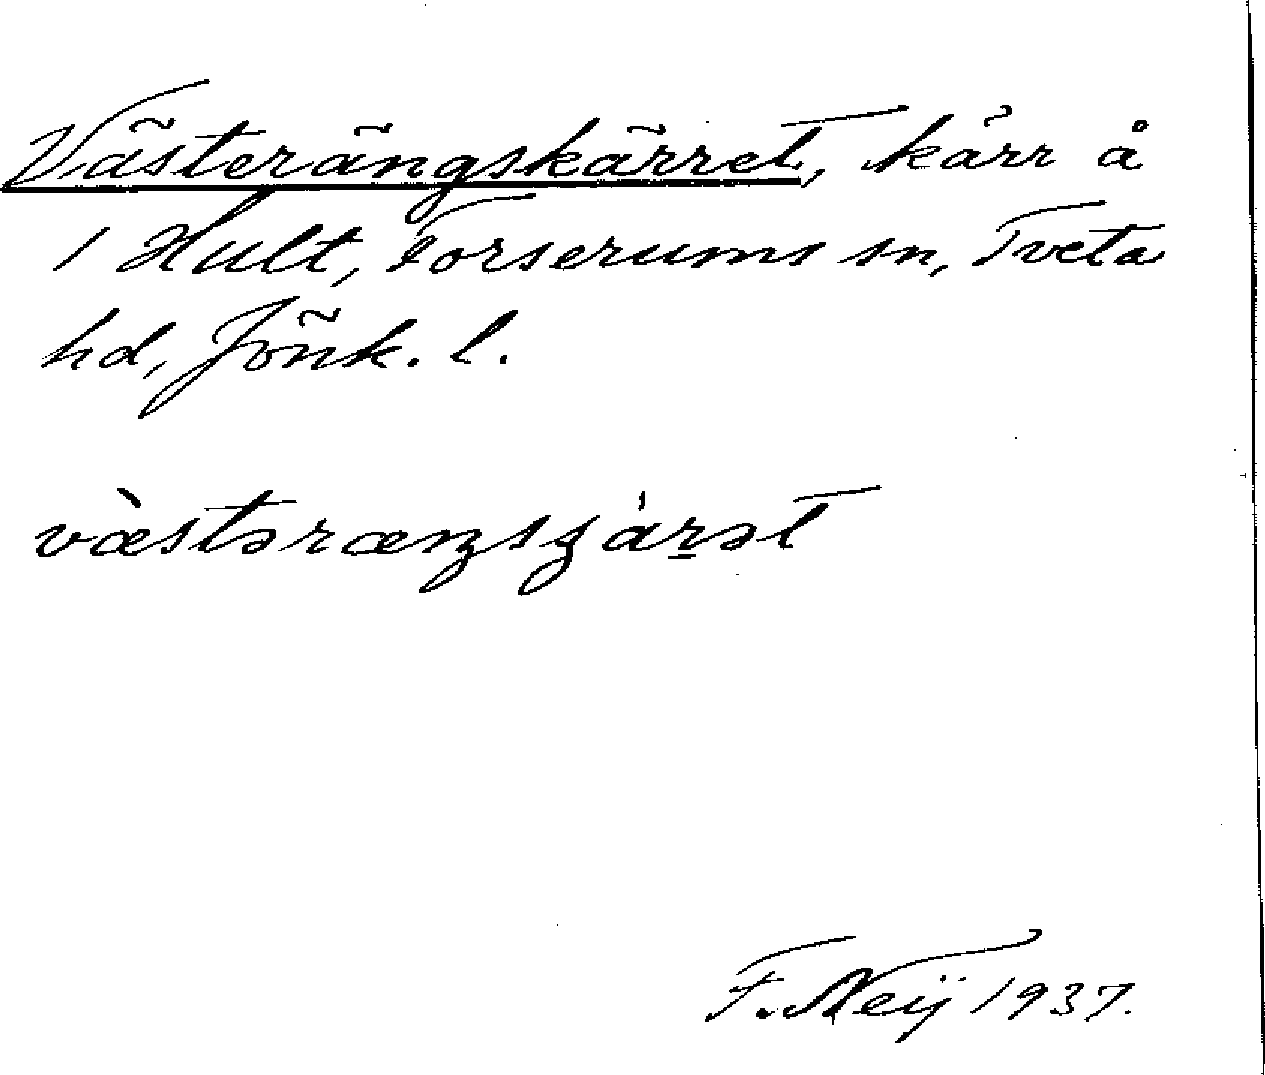 Västerängskärret, kärr å
1 Hult, Forserums sn, Tveta
hd, Jönk. l.
væ̀stəræŋsʒárət
F. Neij 1937.